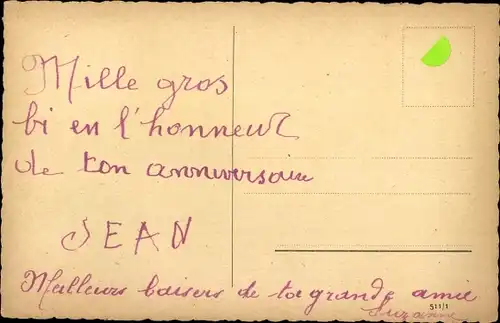 Mille gros
bi en l'honneur
de ton anniversaire
JEAN
Meilleurs baisers de ta grande amie
Suzanne
511/1